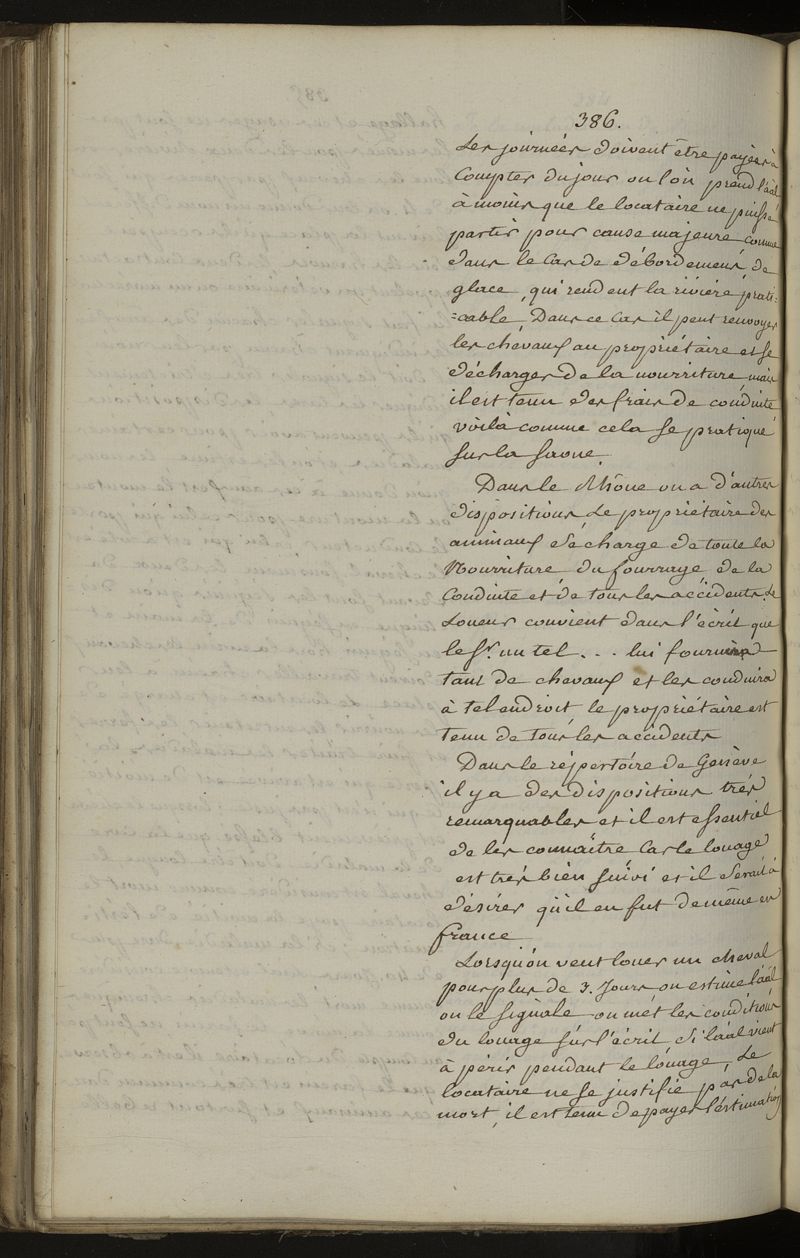 386.
Les journées doivent être payées à
Compter du jour ou l'on prend l'aal
à moins que le locataire ne puisse
partir pour cause majeure comme
dans le Cas de débordement, de
glace, qui rendent la rivière prati-
=cable, Dans ce Cas il peut renvoyer
les chevaux au propriétaire et se
décharger de la nourriture, mais
il est tenu des frais de conduite
voilà comme cela se pratique
sur la saone.
Dans le Rhône on a d'autres
dispositions Le propriétaire des
animaux se charge de toute la
Nourriture du fourrage de la
Conduite et de tous les accidents. Le
Loueur convient dans l'écrit que
le Sr. un tel . . . lui fournira
tant de chevaux et les conduira
à tel endroit le propriétaire est
tenu de tous les accidents
Dans le répertoire de Genève
il y a des dispositions très
remarquables et il est essentiel
de les connaître Car le louage
est très bien suivi et il serait à
désirer qu'il en fut de même en
france
Lorsqu'on veut louer un cheval
pour plus de 3. Jours on estime l'aal
on le signale on mét les conditions
du louage sur l'écrit Si l'aal vient
à périr pendant le louage, Le
locataire ne se justifie pas de la
mort, il est tenu de payer l'estimation